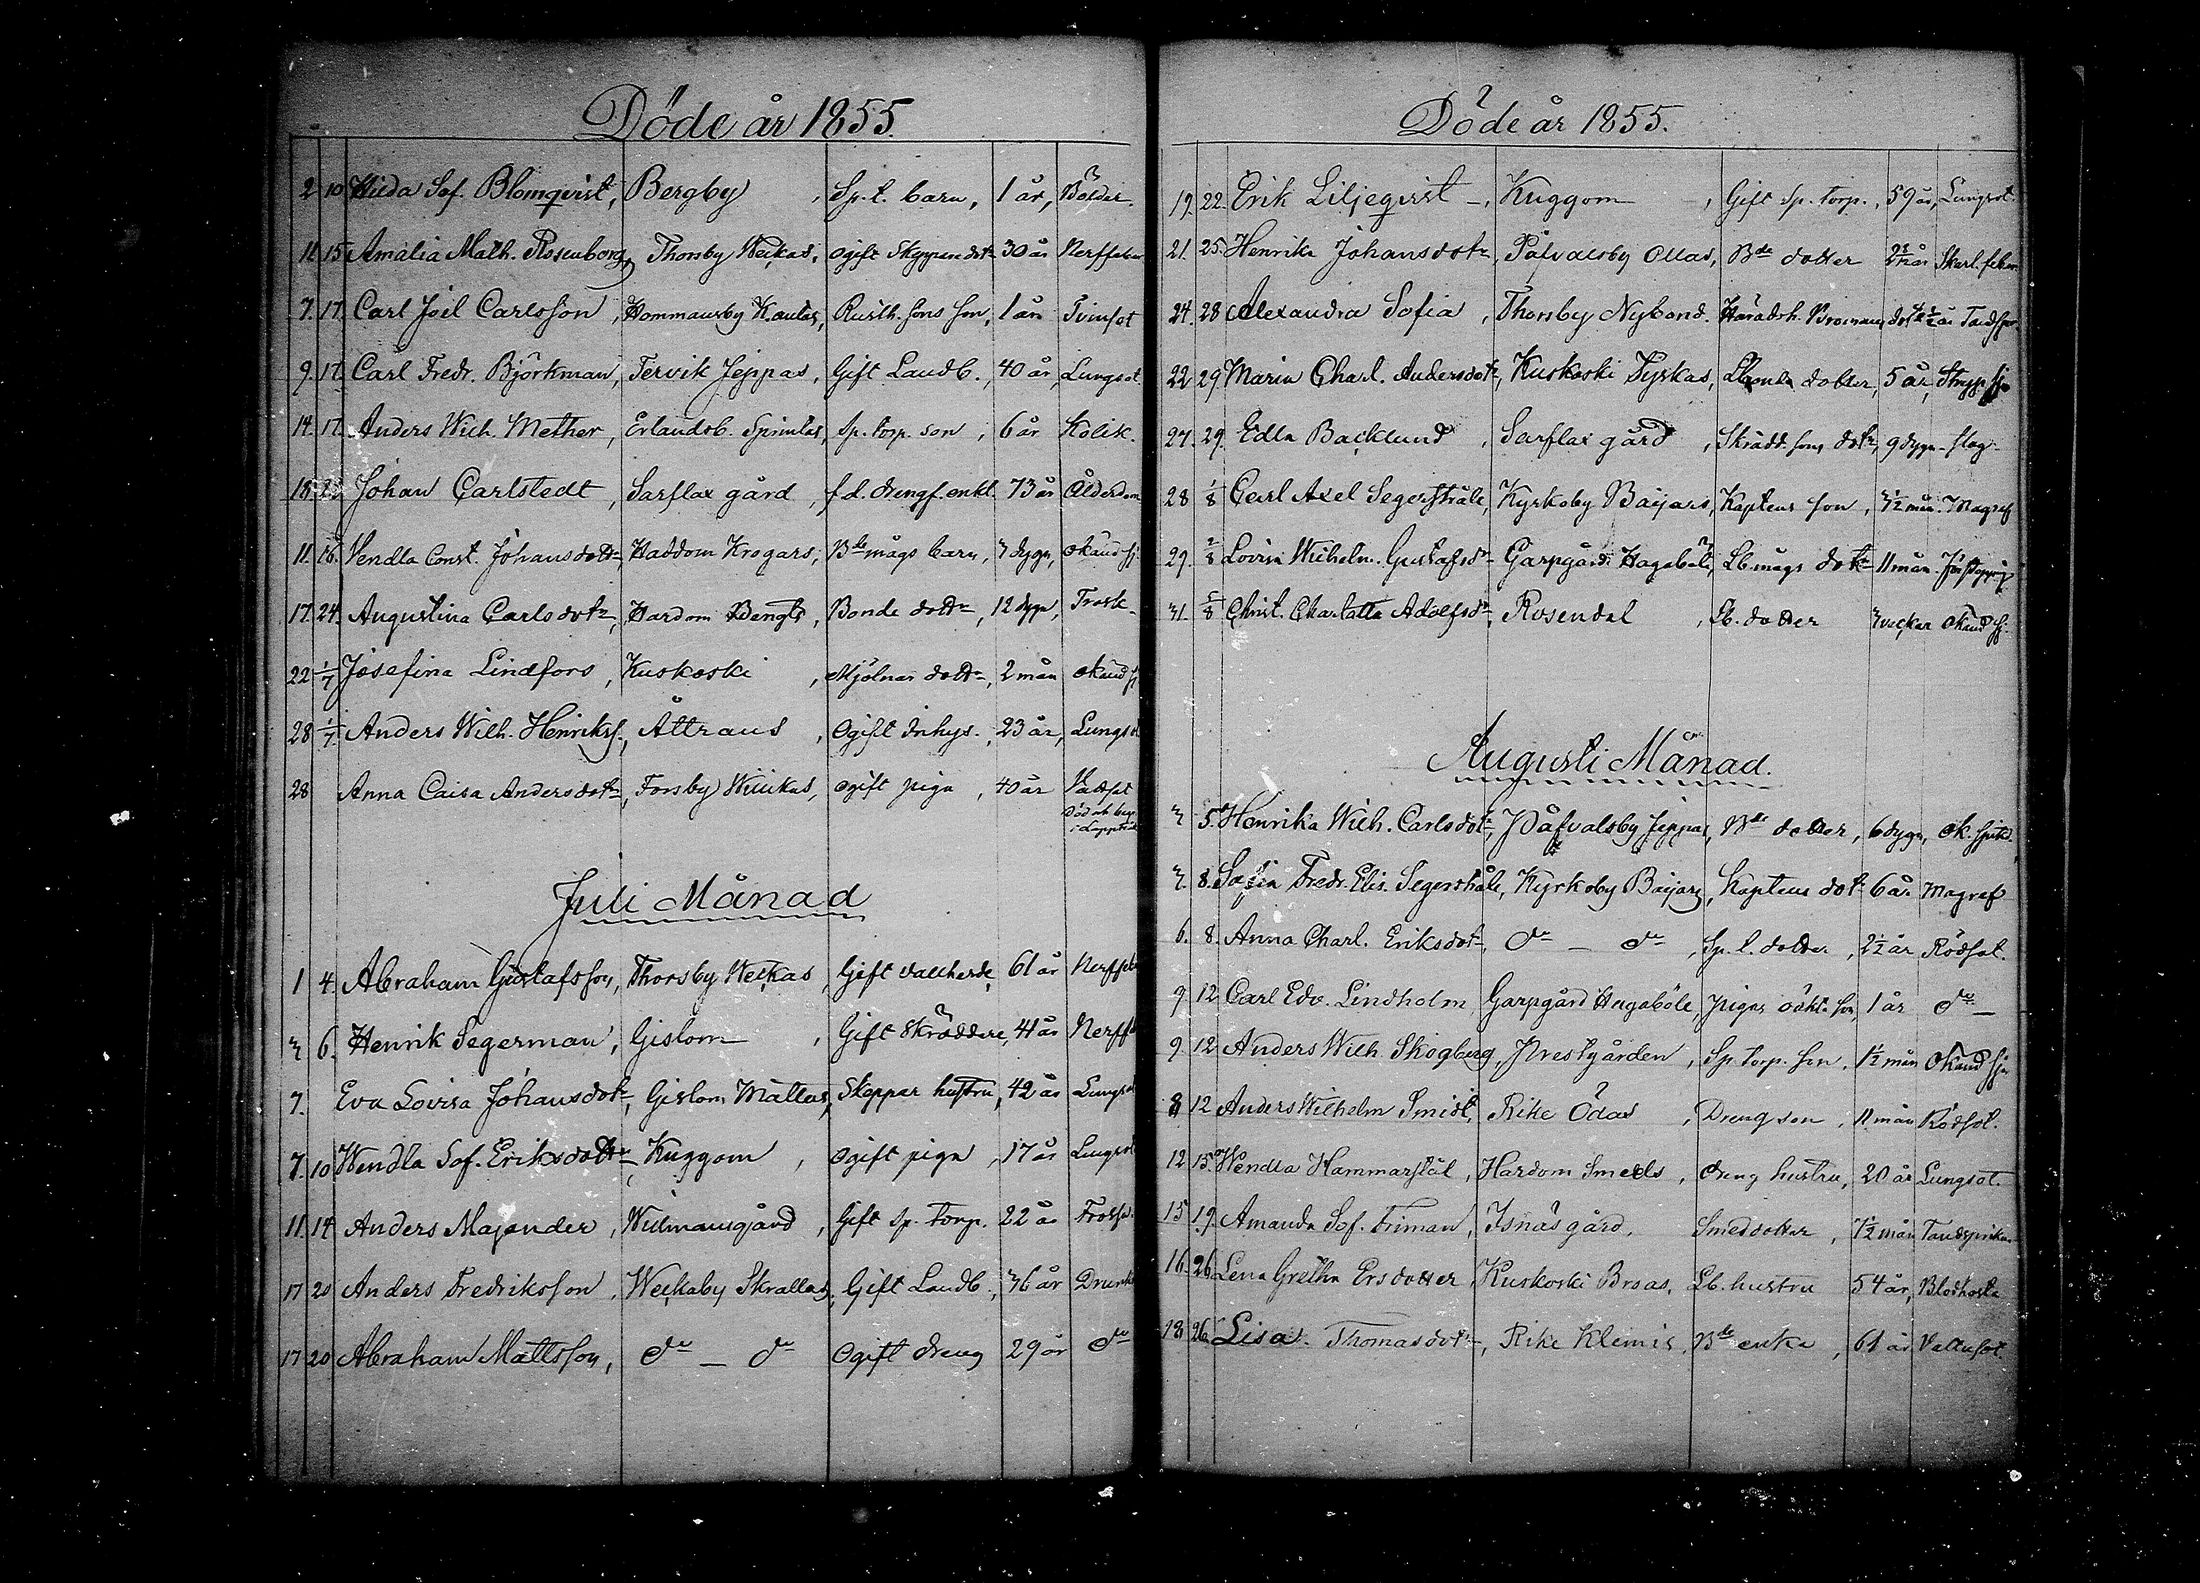 Döde år 1855.
2 10 Hilda Sof. Blomqvist, Bergby, Sp. t. barn, 1 år, Bölder.
11. 15 Amalia Math. Rosenborg, Thorsby Weckas, ogift Skeppsmdotr 30 år Nerffeber
7. 17. Carl Joel Carlsson, Hommansby K.aulas, Rusth. sons son, 1 år Tvinsot
9. 17. Carl Fredr. Björkman, Tervik Jeppas, Gift Landb., 40 år, Lungsot.
14. 17. Anders Wilh. Mether, Erlandsb. Sprintas, sp. torp. son, 6 år Kolik.
18. Johan Carlstedt, Sarflax gård, f.d. drengf. enkl. 73 år Ålderdom
11. 16. Vendla Const. Johansdottr, Haddom Krogars, Bde mågs barn, 3 dygn, okänd sj.
17. 24. Augustina Carlsdotr, Hardom Bengts, Bonde dottr, 12 dygn, Trosk.
22 1/7 Josefina Lindfors, Kuskoski, Mjölnar dottr, 2 mån okänd sj
28 1/7. Anders Wilh. Henrikss., Åttrans, Ogift inhys., 23 år, Lungsot
28 Anna Caisa Andersdotr, Forsby Wiikas, ogift piga, 40 år
Död och begr.
i Lappträsk
Juli Månad
1 4. Abraham Gustafsson, Thorsby Weckas, Gift vallherde, 61 år Nerffeber
3 6. Henrik Segerman, Gislom, Gift Skräddare, 41 år Nerff
7. Eva Lovisa Johansdotr, Gislom Mattas, Skeppar hustru, 42 år Lungsot
7. 10 Wendla Sof. Eriksdottr, Kuggom, ogift piga, 17 år Lungsot
11. 14 Anders Majander, Wilmansgård, Gift sp. torp. 22 år
17 20 Anders Fredriksson, Weckaby Skrallas, Gift Landb., 36 år Drunk
17 20 Abraham Mattsson, do — do Ogift dreng 29 år do
Döde år 1855.
19. 22. Erik Liljeqvist, Kuggom, Gift sp. torp., 59 år, Lungsot.
21. 25. Henrika Johansdotr, Påfvalsby Ollas, Bde dotter år Skarl. feber
24. 28 Alexandra Sofia, Thorsby Nybond. Häradsh. Bromans dotr 4 1/2 år
22 29 Maria Charl. Andersdotr, Kuskoski Dyrkas, dotter, 5 år, Strypsju
27. 29. Edla Backlund, Sarflax gård, Skrädd. sons dotr, 9 dygn slag
28 1/8 Carl Axel Segerstråle, Kyrkoby Baijars, Kaptens son, 3 1/2 mån. Magref
29. 2/8 Lovisa Wilhelm. Gustafsdr Garpgård Hagaböle, Lb. mågs dotr 11 mån.
31. 5/8 Christ. Charlotta Adolfsdr, Rosendal, Lb. dotter 3 veckor okänd sj.
Augusti Månad.
3 5. Henrika Wilh. Carlsdotr, Påfvalsby Jeppas, Bde dotter, 6 dygn, ok. sjukd.
3. 8. Sofia Fredr. Elis. Segerstråle, Kyrkoby Baijars, Kaptens dotr 6 år Magref
6. 8. Anna Charl. Eriksdotr, do — do, Sp. t. dotter, 2 1/2 år Rödsot.
9 12 Carl Edv. Lindholm Garpgård Hagaböle, Pigas oäkta son, 1 år do —
9. 12 Anders Wilh. Skogberg, Prestgården, Sp. torp. son, 1 1/2 mån Okänd sju
8 12 Anders Wilhelm Smidt, Rike Ödas, Dreng son, 11 mån Rödsot.
12. 15 Wendla Hammarstål, Hardom Smeds, dreng hustru, 20 år Lungsot.
15 19. Amanda Sof. Friman, Isnäs gård, Smeddotter, 1/2 mån
16. 26 Lena Gretha Ersdotter Kuskoski Broas, Lb. hustru 54 år, Blodhosta
18 26 Lisa Thomasdotr, Rike Klemis, Bde enka, 61 år Vattusot.